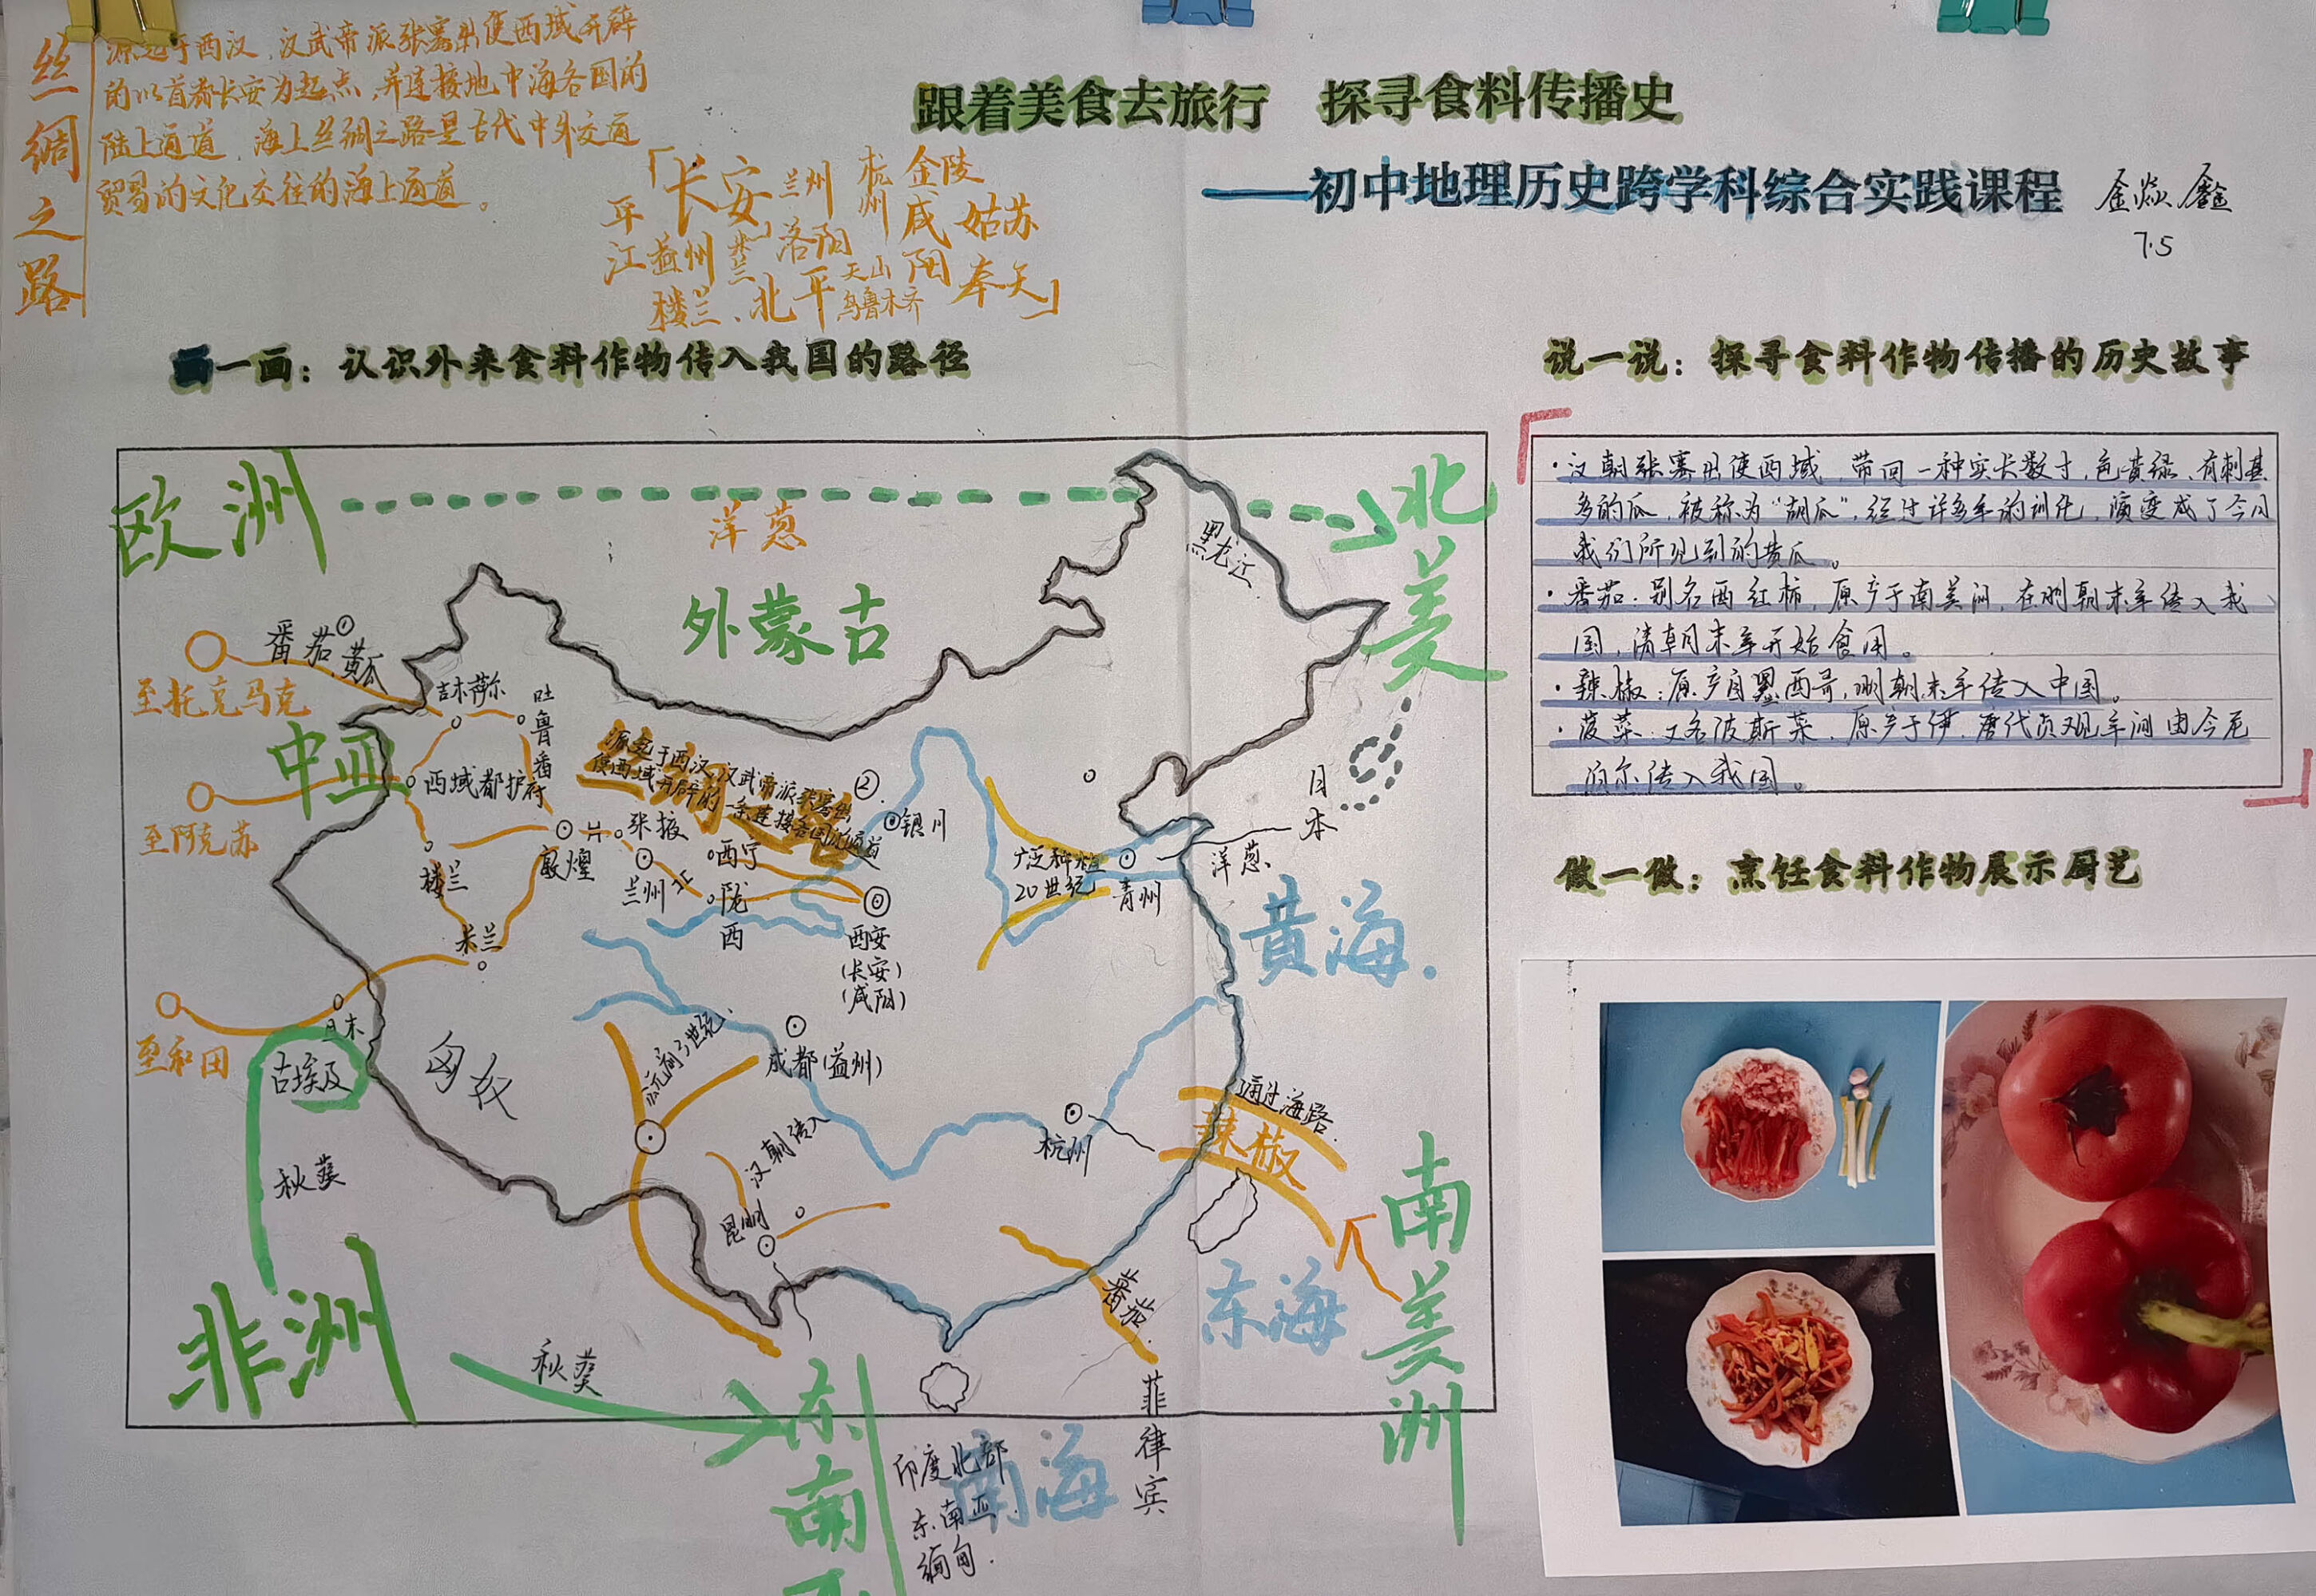 丝绸之路
源起于西汉,汉武帝派张骞出使西域开辟
的以首都长安为起点,并连接地中海各国的
陆上通道,海上丝绸之路是古代中外交通
贸易的文化交往的海上通道。
「长安 兰州 杭州 金陵
平江 益州 洛阳 咸阳 姑苏
楼兰、北平 天山 乌鲁木齐 奉天」
跟着美食去旅行 探寻食料传播史
——初中地理历史跨学科综合实践课程
7.5
画一画:认识外来食料作物传入我国的路径
欧洲
洋葱
北美
外蒙古
黑龙江
番茄 黄瓜
至托克马克
吉木萨尔
吐鲁番
中亚
西域都护府
至阿克苏
源起于西汉,汉武帝派张骞出
使西域开辟的一条连接各国的通道
银川
日本
张掖
西宁
敦煌
兰州
楼兰
陇西
广泛种植
20世纪
青州
洋葱
米兰
西安
(长安)
(咸阳)
黄海.
至和田
且末
古埃及
成都(益州)
汉朝传入
昆明
杭州
通过海路.
辣椒
秋葵
非洲
秋葵
番茄.
东海
南美洲
菲律宾
东南亚
南海
印度北部
东南亚
缅甸.
说一说:探寻食料作物传播的历史故事
·汉朝张骞出使西域,带回一种实长数寸,色黄绿,有刺甚
多的瓜,被称为“胡瓜”,经过许多年的训化,演变成了今日
我们所见到的黄瓜。
·番茄:别名西红柿,原产于南美洲,在明朝末年传入我
国,清朝末年开始食用。
·辣椒:原产自墨西哥,明朝末年传入中国。
·菠菜:又名波斯菜,原产于伊,唐代贞观年间由今尼
泊尔传入我国。
做一做:烹饪食料作物展示厨艺